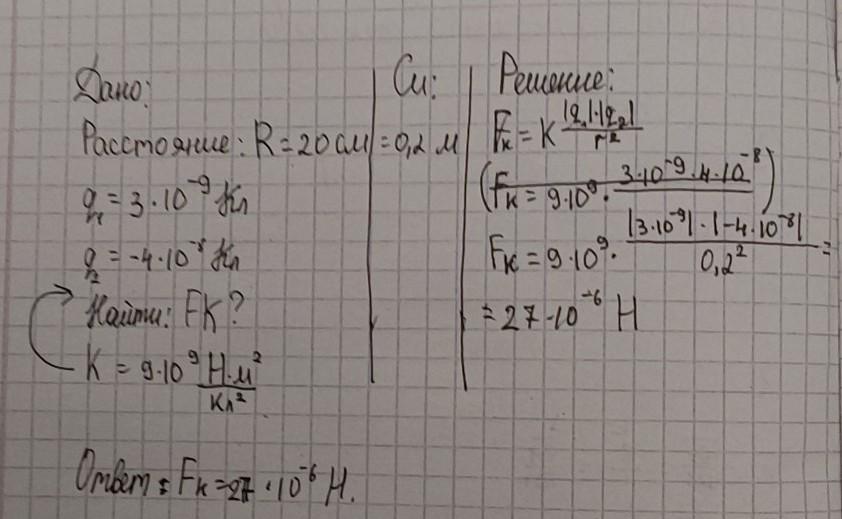 Дано:
Расстояние: R = 20 см = 0,2 м
q₁ = 3·10⁻⁹ Кл
q₂ = -4·10⁻⁸ Кл
Найти: FK?
K = 9·10⁹ Н·м²/Кл²
Си:
Решение:
Fк = K |q₁|·|q₂| / r²
(Fк = 9·10⁹ · 3·10⁻⁹·4·10⁻⁸)
Fк = 9·10⁹ · |3·10⁻⁹|·|-4·10⁻⁸| / 0,2² =
= 27·10⁻⁶ Н
Ответ: Fк = 27·10⁻⁶ Н.